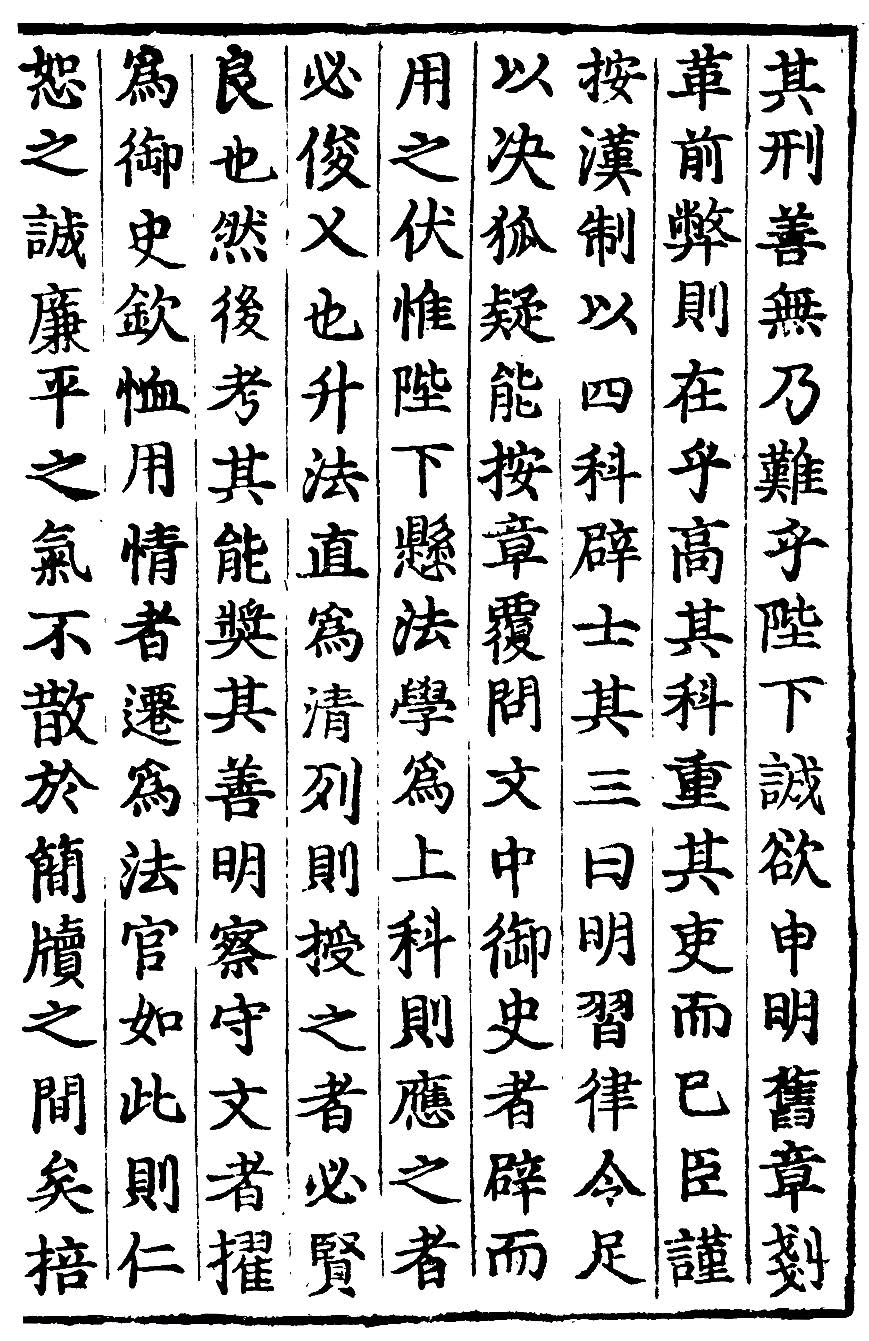 其刑善無乃難乎陛下誠欲申明舊章剗
革前弊則在乎高其科重其吏而已臣謹
按漢制以四科辟士其三曰明習律令足
以决狐疑能按章覆問文中御史者辟而
用之伏惟陛下懸法學爲上科則應之者
必俊乂也升法直爲清列則授之者必賢
良也然後考其能奬其善明察守文者擢
爲御史欽恤用情者遷爲法官如此則仁
恕之誠廉平之氣不散於簡牘之間矣掊